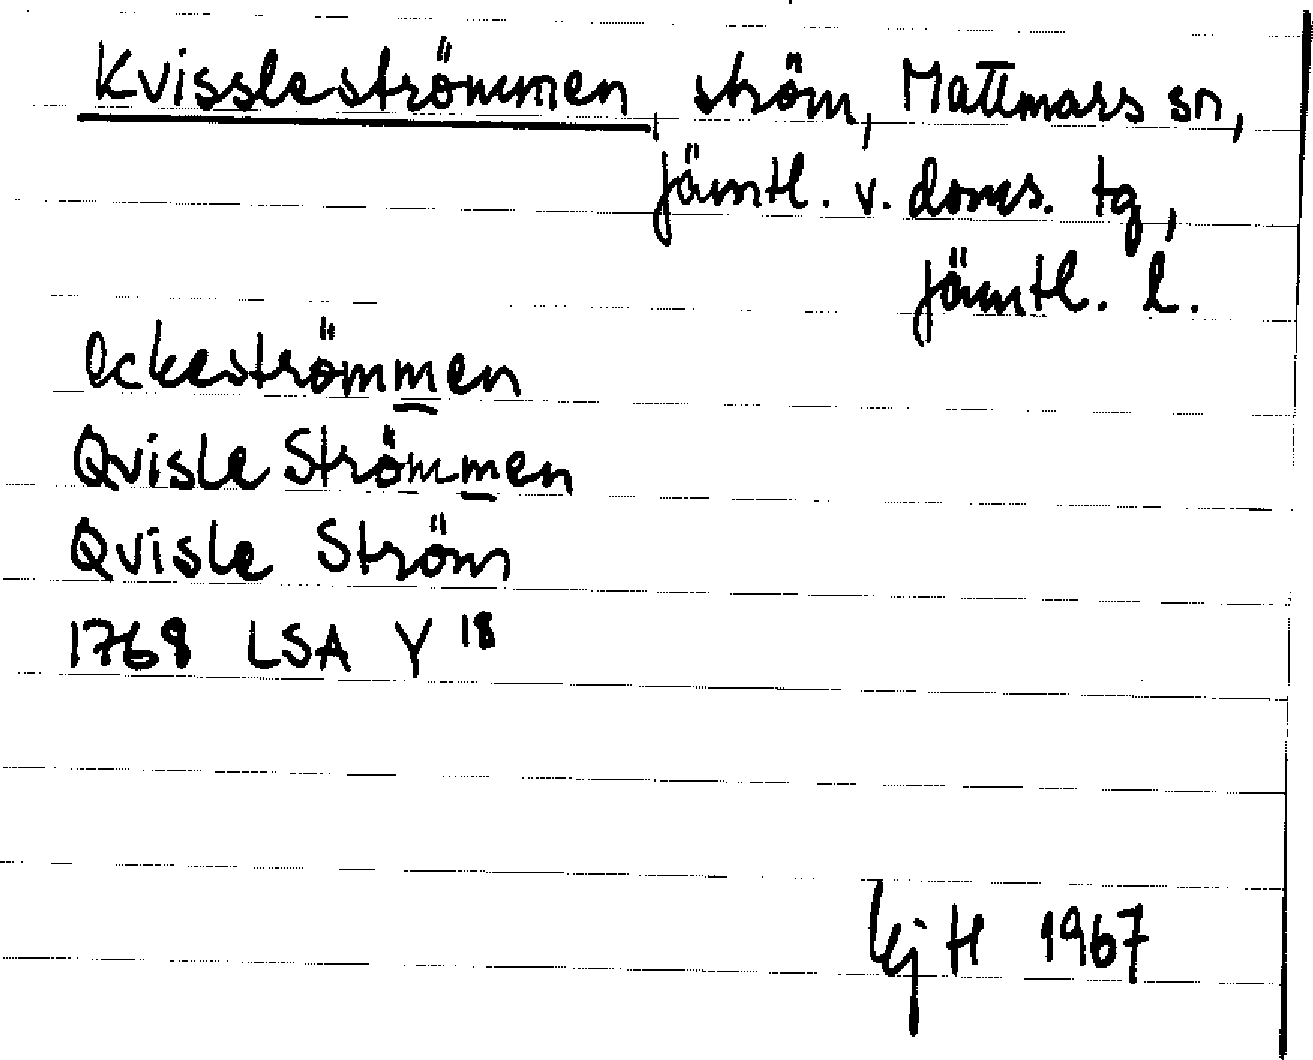 Kvissleströmmen, ström, Mattmars sn,
Jämtl. v. doms. tg,
Jämtl. l.
Ockeströmmen
Qvisle Strömmen
Qvisle Ström
1768 LSA Y 18
1967